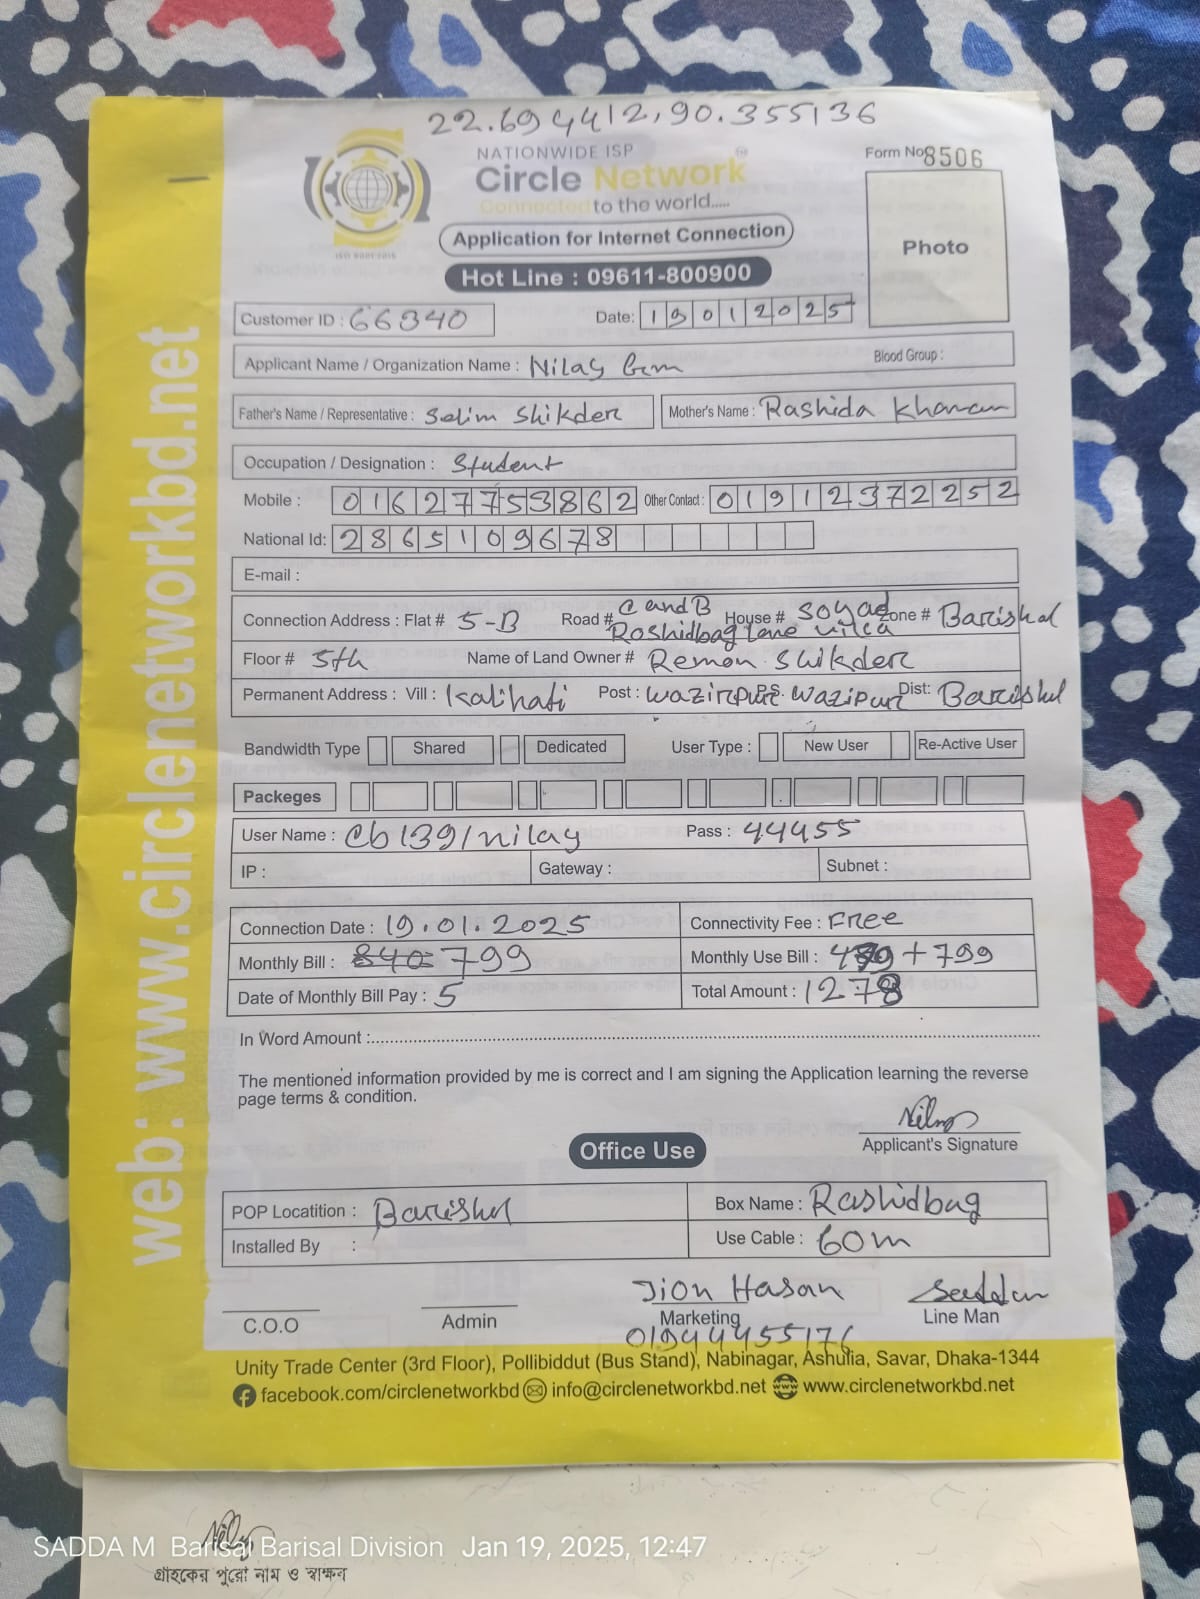 22.694412,90.355136
NATIONWIDE ISP
Form No 8506
Circle Network
Connected to the world.....
ISO 9001:2015
Application for Internet Connection
Photo
Hot Line : 09611-800900
Customer ID : 66340 Date: 19012025
Applicant Name / Organization Name : Nilay Blood Group :
Father's Name / Representative : Selim Shikder Mother's Name : Rashida Khanam
Occupation / Designation : Student
Mobile : 01627753862 Other Contact : 01912372252
National Id: 2865109678
E-mail :
Connection Address : Flat # 5-B Road # C and B Roshidbag Lane House # Soyad villa Zone # Barishal
Floor # 5th Name of Land Owner # Remon Shikder
Permanent Address : Vill : Kalihati Post : Wazirpur P.S. Wazipur Dist: Barishal
Bandwidth Type Shared Dedicated User Type : New User Re-Active User
Packeges
User Name : Cb1391nilay Pass : 44455
IP : Gateway : Subnet :
Connection Date : 19.01.2025 Connectivity Fee : Free
Monthly Bill : 840 799 Monthly Use Bill : 479+799
Date of Monthly Bill Pay : 5 Total Amount : 1278
In Word Amount :
The mentioned information provided by me is correct and I am signing the Application learning the reverse
page terms & condition.
Nilay
Applicant's Signature
Office Use
POP Locatition : Barishal Box Name : Rashidbag
Installed By : Use Cable : 60m
Jion Hasan Saddam
C.O.O Admin Marketing Line Man
01944455176
Unity Trade Center (3rd Floor), Pollibiddut (Bus Stand), Nabinagar, Ashulia, Savar, Dhaka-1344
facebook.com/circlenetworkbd info@circlenetworkbd.net www.circlenetworkbd.net
web: www.circlenetworkbd.net
Nilay
SADDA M Barisal Barisal Division Jan 19, 2025, 12:47
গ্রাহকের পুরো নাম ও স্বাক্ষন